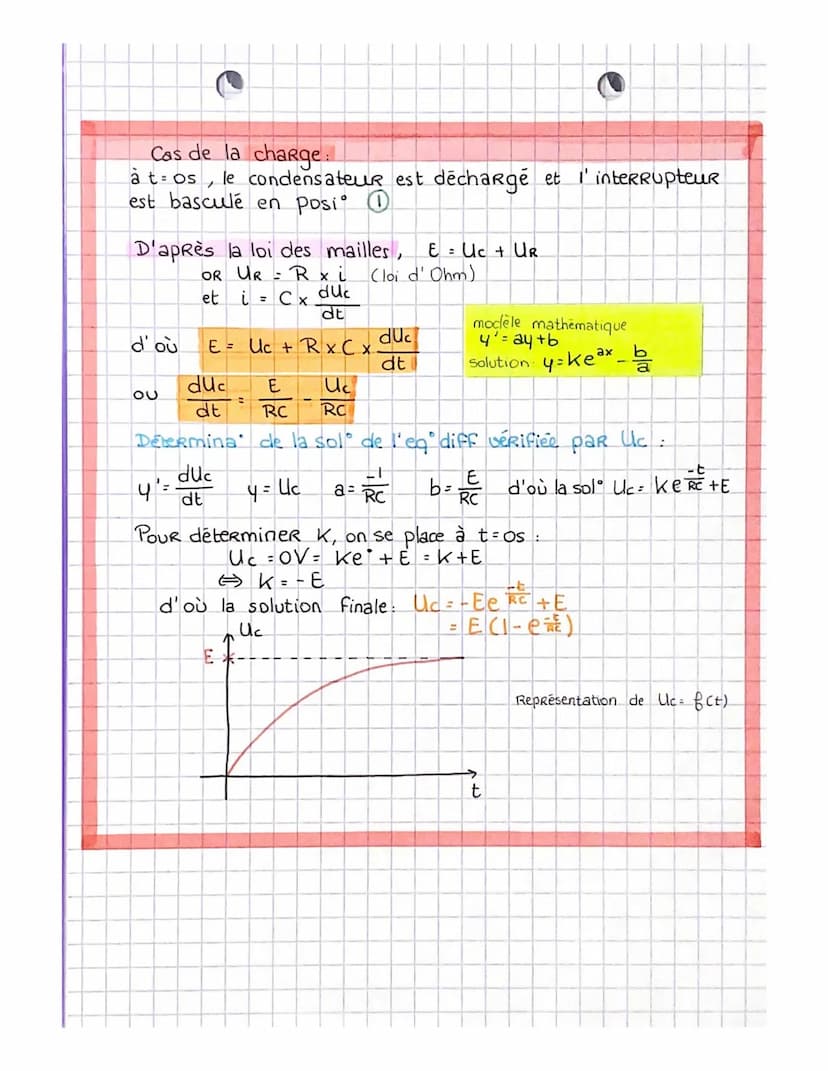 Cas de la charge :
à t=0s, le condensateur est déchargé et l'interrupteur
est basculé en posi° ①
D'après la loi des mailles, E = Uc + UR
or UR = R x i (loi d'Ohm)
et i = C x dUc/dt
modèle mathématique
y' = ay+b
solution: y=Ke^(ax) - b/a
d'où E = Uc + R x C x dUc/dt
ou dUc/dt = E/RC - Uc/RC
Détermina° de la sol° de l'eq° diff vérifiée par Uc :
y' = dUc/dt y = Uc a = -1/RC b = E/RC d'où la sol° Uc = Ke^(-t/RC) + E
Pour déterminer K, on se place à t=0s :
Uc = 0V = Ke° + E = K+E
⇔ K = -E
d'où la solution finale : Uc = -Ee^(-t/RC) + E
= E (1-e^(-t/RC))
Uc
E
Représentation de Uc = f(t)
t